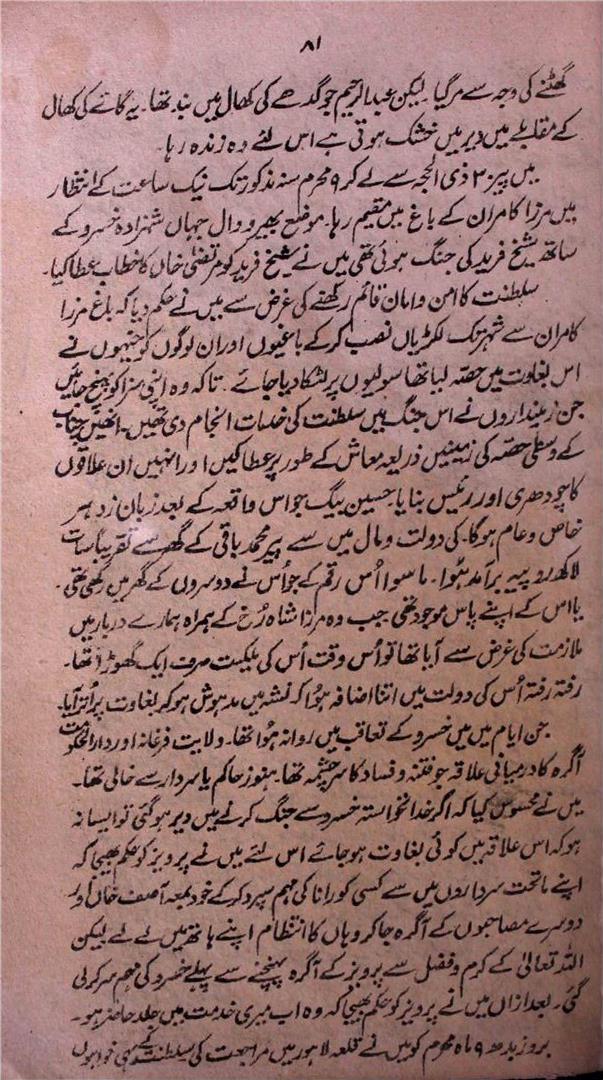 ۸۱
گھٹنے کی وجہ سے مر گیا۔ لیکن عبدالرحیم جو گدھے کی کھال میں بند تھا۔ یہ گائے کی کھال
کے مقابلے میں دیر میں خشک ہوتی ہے اس لئے وہ زندہ رہا۔
میں پیر ۳۰ ذی الحجہ سے لے کر ۹ محرم سنہ مذکور تک نیک ساعت کے انتظار
میں مرزا کامران کے باغ میں مقیم رہا۔ موضع بھیرووال جہاں شہزادہ خسرو کے
ساتھ شیخ فرید کی جنگ ہوئی تھی میں نے شیخ فرید کو مرتضیٰ خاں کا خطاب عطا کیا۔
سلطنت کا امن و امان قائم رکھنے کی غرض سے میں نے حکم دیا کہ باغ مرزا
کامران سے شہر تک لکڑیاں نصب کر کے باغیوں اور ان لوگوں کو جنہوں نے
اس بغاوت میں حصہ لیا تھا سولیوں پر لٹکا دیا جائے۔ تاکہ وہ اپنی سزا کو پہنچ جائیں
جن زمینداروں نے اس جنگ میں سلطنت کی خدمات انجام دی تھیں۔ انھیں چناب
کے وسطی حصہ کی زمینیں ذریعہ معاش کے طور پر عطا کیں اور انہیں ان علاقوں
کا چودھری اور رئیس بنایا۔ حسین بیگ جو اس واقعہ کے بعد زبان زد ہر
خاص و عام ہوگا۔ کی دولت و مال میں سے پیر محمد باقی کے گھر سے تقریباً سات
لاکھ روپیہ برآمد ہوا۔ ماسوا اُس رقم کے جو اُس نے دوسروں کے گھر میں رکھی تھی۔
یا اس کے اپنے پاس موجود تھی جب وہ مرزا شاہ رُخ کے ہمراہ ہمارے دربار میں
ملازمت کی غرض سے آیا تھا تو اُس وقت اُس کی ملکیت صرف ایک گھوڑا تھا۔
رفتہ رفتہ اُس کی دولت میں اتنا اضافہ ہوا کہ نشہ میں مدہوش ہو کر بغاوت پر اُتر آیا۔
جن ایام میں میں خسرو کے تعاقب میں روانہ ہوا تھا۔ ولایت فرغانہ اور دارالحکومت
آگرہ کا درمیانی علاقہ جو فتنہ و فساد کا سرچشمہ تھا۔ ہنوز حاکم یا سردار سے خالی تھا۔
میں نے محسوس کیا کہ اگر خدانخواستہ خسرو سے جنگ کرنے میں دیر ہو گئی تو ایسا نہ
ہو کہ اس علاقہ میں کوئی بغاوت ہو جائے اس لئے میں نے پرویز کو حکم بھیجا کہ
اپنے ماتحت سرداروں میں سے کسی کو رانا کی مہم سپرد کر کے خود بمعہ آصف خاں اور
دوسرے مصاحبوں کے آگرہ جا کر وہاں کا انتظام اپنے ہاتھ میں لے لے لیکن
اللہ تعالیٰ کے کرم و فضل سے پرویز کے آگرہ پہنچنے سے پہلے خسرو کی مہم سر کر لی
گئی۔ بعد ازاں میں نے پرویز کو حکم بھیجا کہ وہ اب میری خدمت میں جلد حاضر ہو۔
بروز بدھ ۹ ماہ محرم کو میں نے قلعہ لاہور میں مراجعت کی سلطنت کے بہی خواہوں